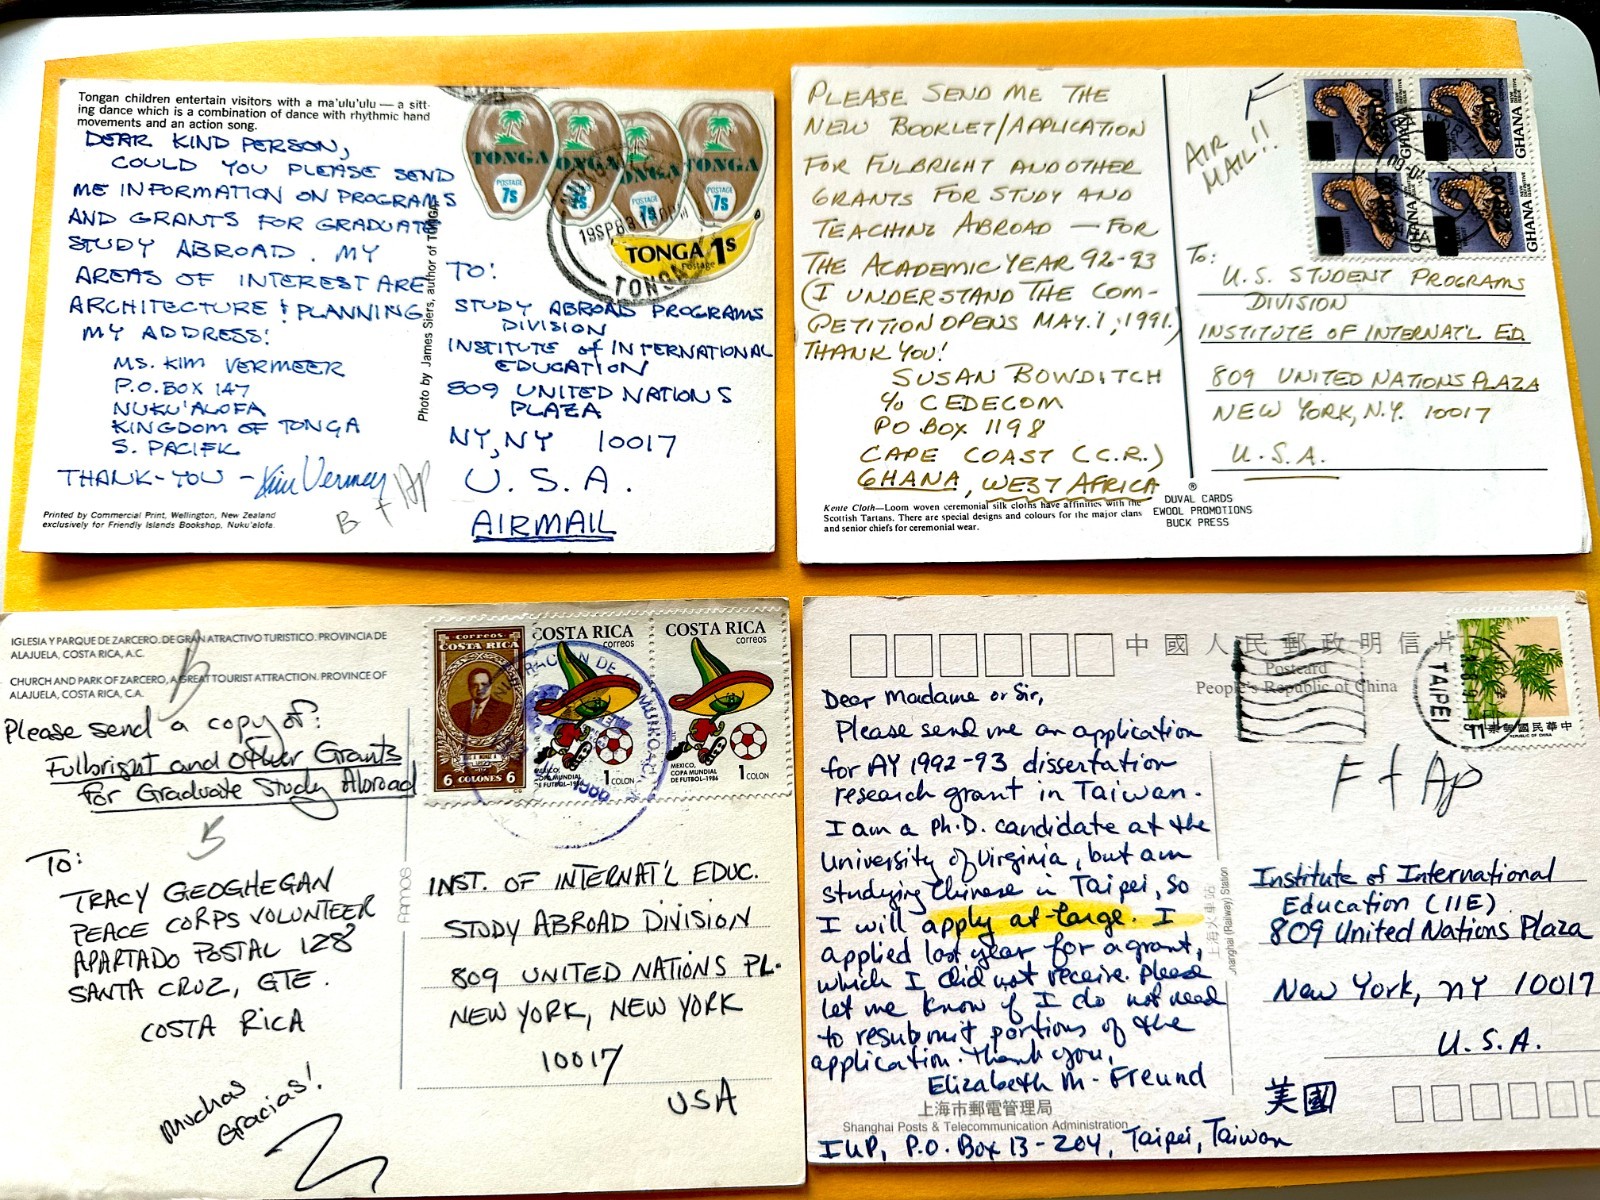 Tongan children entertain visitors with a ma'ulu'ulu — a sitt-
ing dance which is a combination of dance with rhythmic hand
movements and an action song.
DEAR KIND PERSON,
COULD YOU PLEASE SEND
ME INFORMATION ON PROGRAMS
AND GRANTS FOR GRADUATE
STUDY ABROAD. MY
AREAS OF INTEREST ARE
ARCHITECTURE & PLANNING
MY ADDRESS:
MS. KIM VERMEER
P.O. BOX 147
NUKU'ALOFA
KINGDOM OF TONGA
S. PACIFIK
THANK-YOU - Kim Vermeer
B f Ap
Printed by Commercial Print, Wellington, New Zealand
exclusively for Friendly Islands Bookshop, Nuku'alofa.
Photo by James Siers, author of TONGA
TONGA
POSTAGE
7s
TONGA
7s
TONGA
POSTAGE
7s
TONGA
POSTAGE
7s
TONGA 1s
Postage
19SP83
TONGA
TO:
STUDY ABROAD PROGRAMS
DIVISION
INSTITUTE of INTERNATIONAL
EDUCATION
809 UNITED NATIONS
PLAZA
NY, NY 10017
U. S. A.
AIRMAIL
PLEASE SEND ME THE
NEW BOOKLET/APPLICATION
FOR FULBRIGHT AND OTHER
GRANTS FOR STUDY AND
TEACHING ABROAD — FOR
THE ACADEMIC YEAR 92-93
(I UNDERSTAND THE COM-
PETITION OPENS MAY. 1, 1991.)
THANK YOU!
SUSAN BOWDITCH
c/o CEDECOM
PO BOX 1198
CAPE COAST (C.R.)
GHANA, WEST AFRICA
Kente Cloth—Loom woven ceremonial silk cloths have affinities with the
Scottish Tartans. There are special designs and colours for the major clans
and senior chiefs for ceremonial wear.
®
DUVAL CARDS
EWOOL PROMOTIONS
BUCK PRESS
F
AIR
MAIL!!
GHANA
GHANA
GHANA
GHANA
To:
U.S. STUDENT PROGRAMS
DIVISION
INSTITUTE OF INTERNAT'L ED.
809 UNITED NATIONS PLAZA
NEW YORK, N.Y. 10017
U.S.A.
IGLESIA Y PARQUE DE ZARCERO. DE GRAN ATRACTIVO TURISTICO. PROVINCIA DE
ALAJUELA, COSTA RICA, A.C.
CHURCH AND PARK OF ZARCERO, A GREAT TOURIST ATTRACTION. PROVINCE OF
ALAJUELA, COSTA RICA, C.A.
B
Please send a copy of:
Fulbright and Other Grants
for Graduate Study Abroad
B
TO:
TRACY GEOGHEGAN
PEACE CORPS VOLUNTEER
APARTADO POSTAL 128
SANTA CRUZ, GTE.
COSTA RICA
Muchas
Gracias!
FAMOS
correos
COSTA RICA
6 COLONES 6
COSTA RICA
correos
MEXICO,
COPA MUNDIAL
DE FUTBOL-1986
1 COLON
COSTA RICA
correos
MEXICO,
COPA MUNDIAL
DE FUTBOL-1986
1 COLON
INST. OF INTERNAT'L EDUC.
STUDY ABROAD DIVISION
809 UNITED NATIONS PL.
NEW YORK, NEW YORK
10017
USA
中國人民郵政明信片
Postcard
People's Republic of China
Dear Madame or Sir,
Please send me an application
for AY 1992-93 dissertation
research grant in Taiwan.
I am a Ph.D. candidate at the
University of Virginia, but am
studying Chinese in Taipei, so
I will apply at-large. I
applied last year for a grant,
which I did not receive. Please
let me know if I do not need
to resubmit portions of the
application. Thank you,
Elizabeth M. Freund
上海市郵電管理局
Shanghai Posts & Telecommunication Administration
IUP, P.O. Box 13-204, Taipei, Taiwan
上海火車站
Shanghai (Railway) Station
TAIPEI
中華民國郵票
REPUBLIC OF CHINA
F f Ap
Institute of International
Education (IIE)
809 United Nations Plaza
New York, NY 10017
U.S.A.
美國